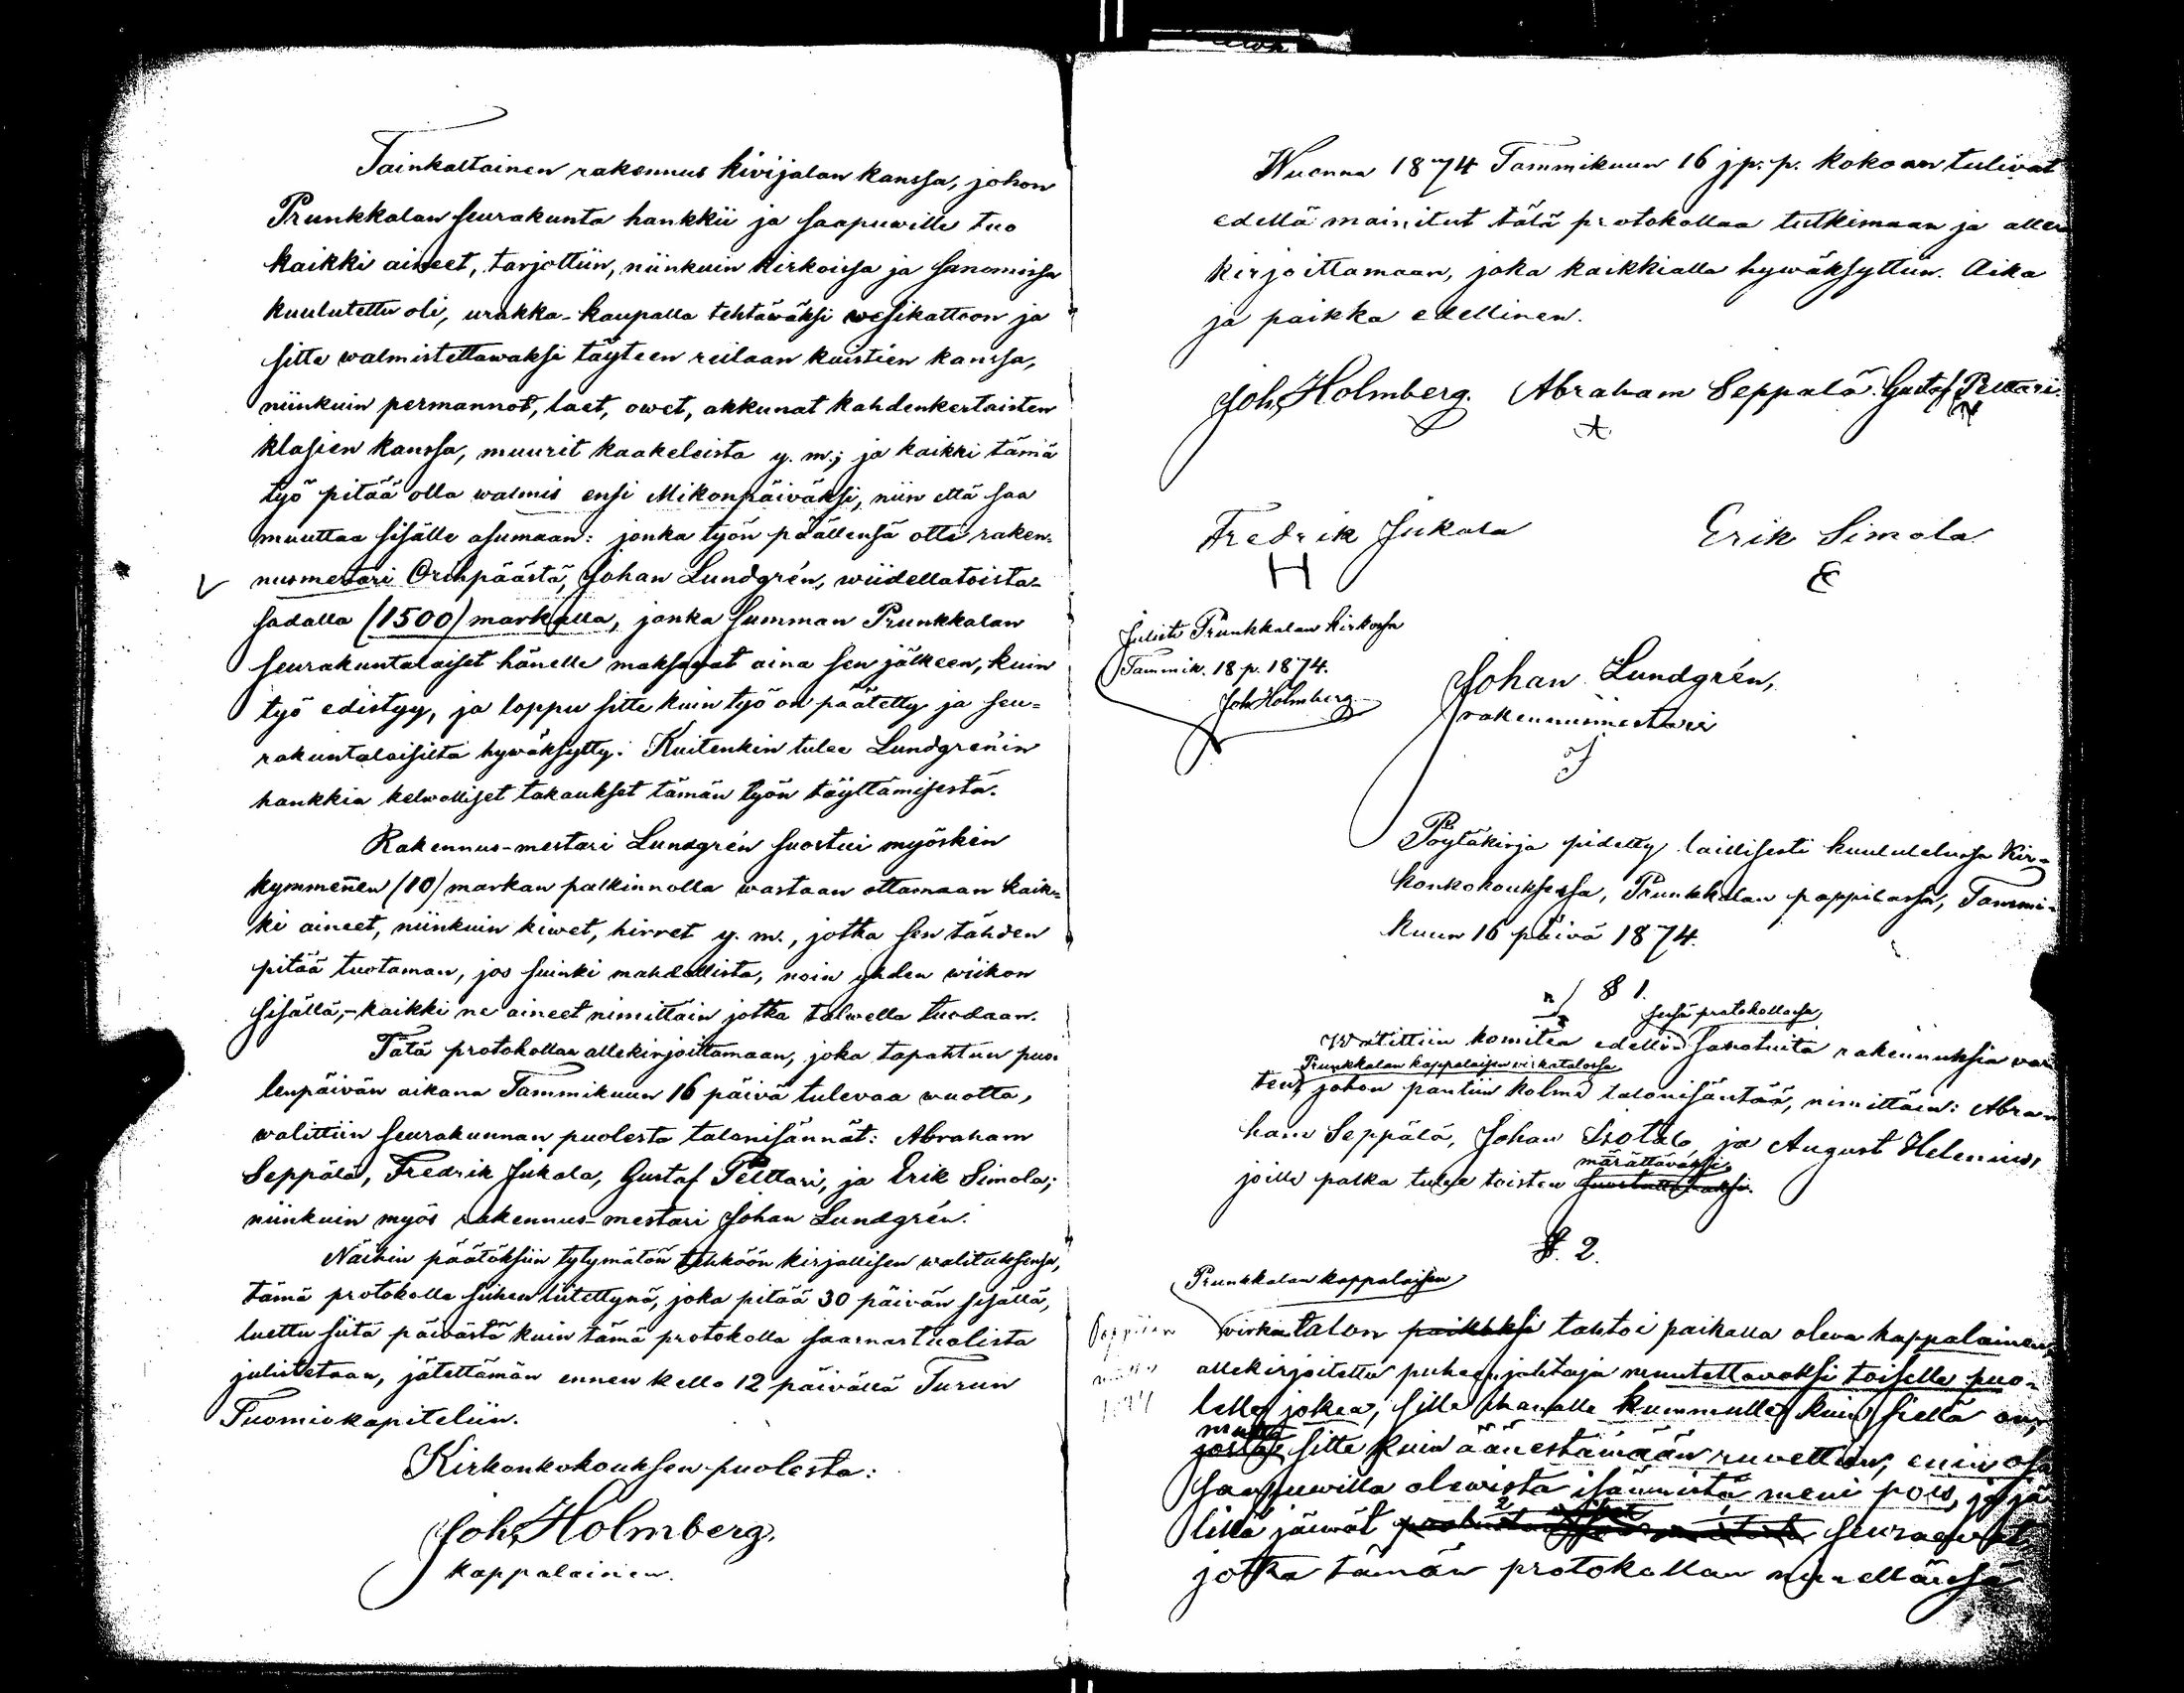 Tainkaltainen rakennus kivijalan kanssa, johon
Prunkkalan seurakunta hankkii ja saapuwille tuo
kaikki aineet, tarjottiin, niinkuin kirkoissa ja sanomissa
kuulutettu oli, urakka-kaupalla tehtäwäksi wesikattoon ja
sitte walmistettawaksi täyteen reilaan kuistien kanssa,
niinkuin permannot, laet, owet, akkunat kahdenkertaisten
klasien kanssa, muurit kaakeleista y. m.; ja kaikki tämä
työ pitää olla walmis ensi Mikonpäiväksi, niin että saa
muuttaa sisälle asumaan: jonka työn päällensä otti raken-
nusmestari Orihpäästä, Johan Lundgrén, wiidellatoista-
sadalla (1500) markalla, jonka summan Prunkkalan
seurakuntalaiset hänelle maksavat aina sen jälkeen, kuin
työ edistyy, ja loppu sitte kuin työ on päätetty ja seu-
rakuntalaisilta hywäksytty. Kuitenkin tulee Lundgrén'in
hankkia kelwolliset takaukset tämän työn täyttämisestä.
Rakennus-mestari Lundgrén suostui myöskin
kymmenen (10) markan palkinnolla wastaan ottamaan kaik-
ki aineet, niinkuin kiwet, hirret y. m., jotka sen tähden
pitää tuotaman, jos suinki mahdollista, noin yhden wiikon
sisällä,- kaikki ne aineet nimittäin jotka talwella tuodaan.
Tätä protokollaa allekirjoittamaan, joka tapahtuu puo-
lenpäivän aikana Tammikuun 16 päivä tulevaa wuotta,
walittiin seurakunnan puolesta talonisännät: Abraham
Seppälä, Fredrik Jukala, Gustaf Pelttari, ja Erik Simola;
niinkuin myös rakennus-mestari Johan Lundgrén.
Näihin päätöksiin tytymätön tehköön kirjallisen walituksensa,
tämä protokolla siihen liitettynä, joka pitää 30 päivän sisällä,
luettu siitä päivästä kuin tämä protokolla saarnastuolista
julistetaan, jätettämän ennen kello 12 päivällä Turun
Tuomiokapiteliin.
Kirkonkokouksen puolesta:
Joh. Holmberg,
kappalainen.
Wuonna 1874 Tammikuun 16 p:p. kokoon tulivat
edellä mainitut tätä protokollaa tutkimaan ja alle-
kirjoittamaan, joka kaikkialla hywäksyttiin. Aika
ja paikka edellinen.
Joh. Holmberg. Abraham Seppälä. Gustaf Pelttari.
Fredrik Jukala Erik Simola
H E
Julisti Prunkkalan kirkossa
Tammik. 18 p. 1874.
Joh. Holmberg
Johan Lundgrén,
rakennusmestari
Pöytäkirja pidetty laillisesti kuulutetussa Kir-
konkokouksessa, Prunkkalan pappilassa, Tammi-
kuun 16 päivä 1874.
§ 1.
protokollassa,
Walittiin komitea edellä sanotuita rakennuksia var
Prunkkalan kappalaisen virkatalossa
ten, johon pantiin kolme talonisäntää, nimittäin: Abra-
ham Seppälä, Johan Isotalo, ja August Helenius,
märättäväksi
joille palka tulee toisten
§. 2.
Prunkkalan kappalaisen
Pappilan
1874
virkatalon paikaksi tahtoi paikalla oleva kappalainen,
allekirjoitettu puheenjohtaja muutettavaksi toiselle puo-
lelle jokea, sille kummulle kuin siellä on,
mutta
sitte kuin äänestämään ruvettiin, enin osa
saapuwilla olewista isännistä meni pois, ja jä
lille jäiwät seuraavat,
jotka tämän protokollan